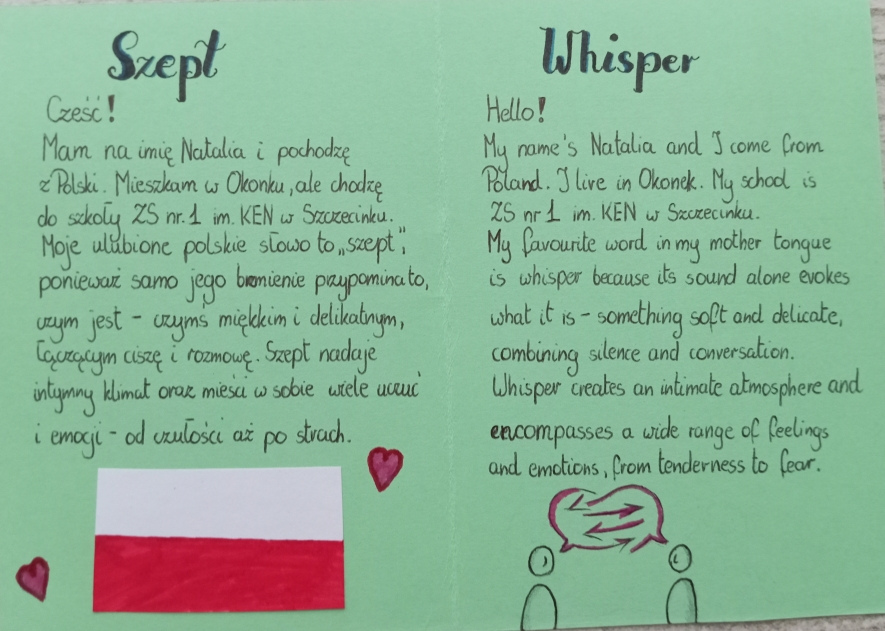 Szept
Cześć!
Mam na imię Natalia i pochodzę
z Polski. Mieszkam w Okonku, ale chodzę
do szkoły ZS nr. 1 im. KEN w Szczecinku.
Moje ulubione polskie słowo to „szept",
ponieważ samo jego brzmienie przypomina to,
czym jest - czymś miękkim i delikatnym,
łączącym ciszę i rozmowę. Szept nadaje
intymny klimat oraz mieści w sobie wiele uczuć
i emocji - od czułości aż po strach.
Whisper
Hello!
My name's Natalia and I come from
Poland. I live in Okonek. My school is
ZS nr 1 im. KEN w Szczecinku.
My favourite word in my mother tongue
is whisper because its sound alone evokes
what it is - something soft and delicate,
combining silence and conversation.
Whisper creates an intimate atmosphere and
encompasses a wide range of feelings
and emotions, from tenderness to fear.